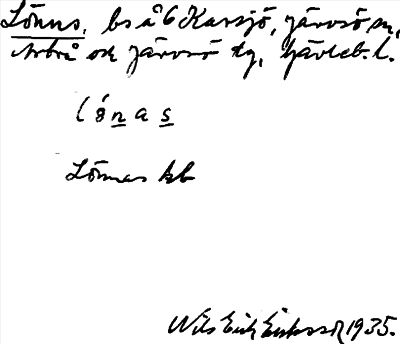 Lönns, bs å 6 Karsjö, Järvsö sn,
Arbrå ok Järvsö tg, Gävleb. l.
lönas
Lönnas kb
Nils Erik Eriksson 1935.